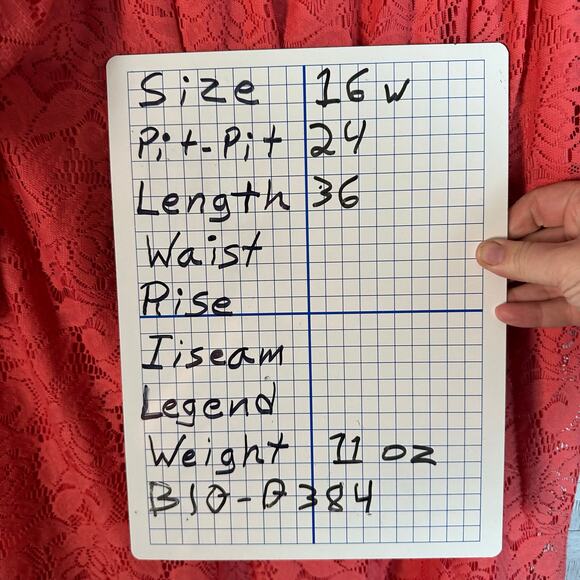 Size 16 W
Pit-Pit 24
Length 36
Waist
Rise
Iiseam
Legend
Weight 11 oz
B10-0384